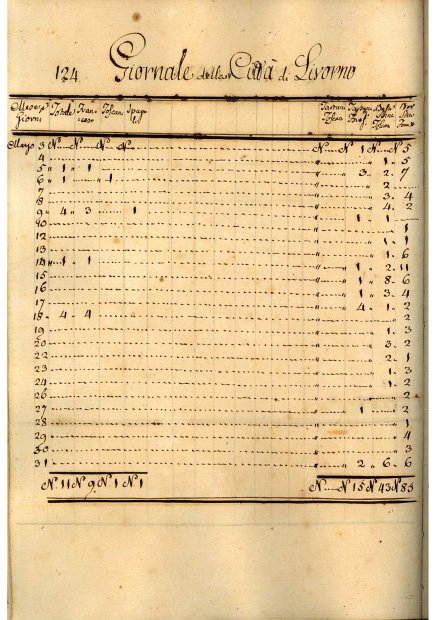 124. Giornale della Città di Livorno
Mese e Giorni Totale Fran cese Toscan Spag
Tartan Toscan
Maggio 3 N° N° N° N° N° N° 1 N° N° 5
4 1 5
5 1 1 3 2 7
6 1 1 2
7 3 4
8 4 2
9 4 3 1 1 1
10 1
12 1
13 1 6
14 1 1 1 2 11
15 1 8 6
16 1 3 4
17 4 1 2
18 4 4 2
19 1 3
20 3 2
22 2 1
23 1 3
24 1 2
26 2
27 1 2
28 1
29 4
30 3
31 2 6 6
N° 11 N° 9 N° 1 N° 1 N° N° 15 N° 43 N° 85